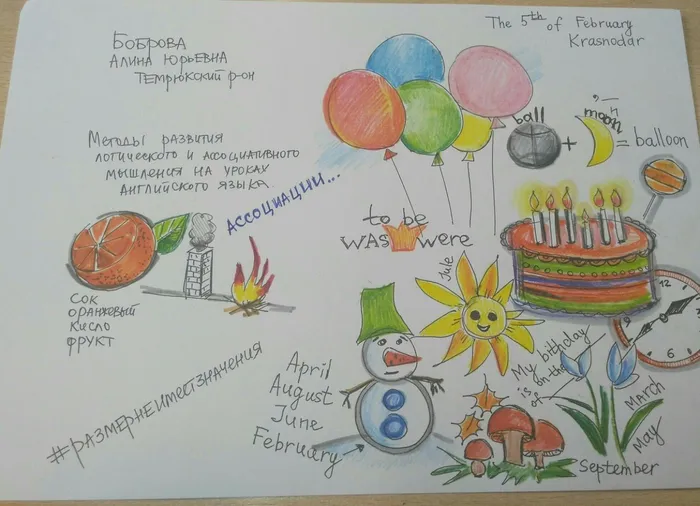 The 5th of February
Krasnodar
БОБРОВА
АЛИНА ЮРЬЕВНА
ТЕМРЮКСКИЙ р-он
МЕТОДЫ РАЗВИТИЯ
ЛОГИЧЕСКОГО И АССОЦИАТИВНОГО
МЫШЛЕНИЯ НА УРОКАХ
АНГЛИЙСКОГО ЯЗЫКА.
АССОЦИАЦИИ...
ball
moon
+
= balloon
to be
WAS were
СОК
ОРАНЖЕВЫЙ
КИСЛО
ФРУКТ
#РАЗМЕРНЕИМЕЕТЗНАЧЕНИЯ
April
August
June
February
My birthday
is on the
of
March
May
September
12
3
9